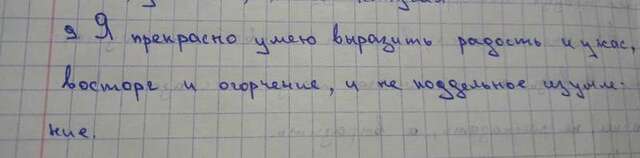 Я прекрасно умею выразить радость и ужас,
восторг и огорчение, и не поддельное изумле-
ние.